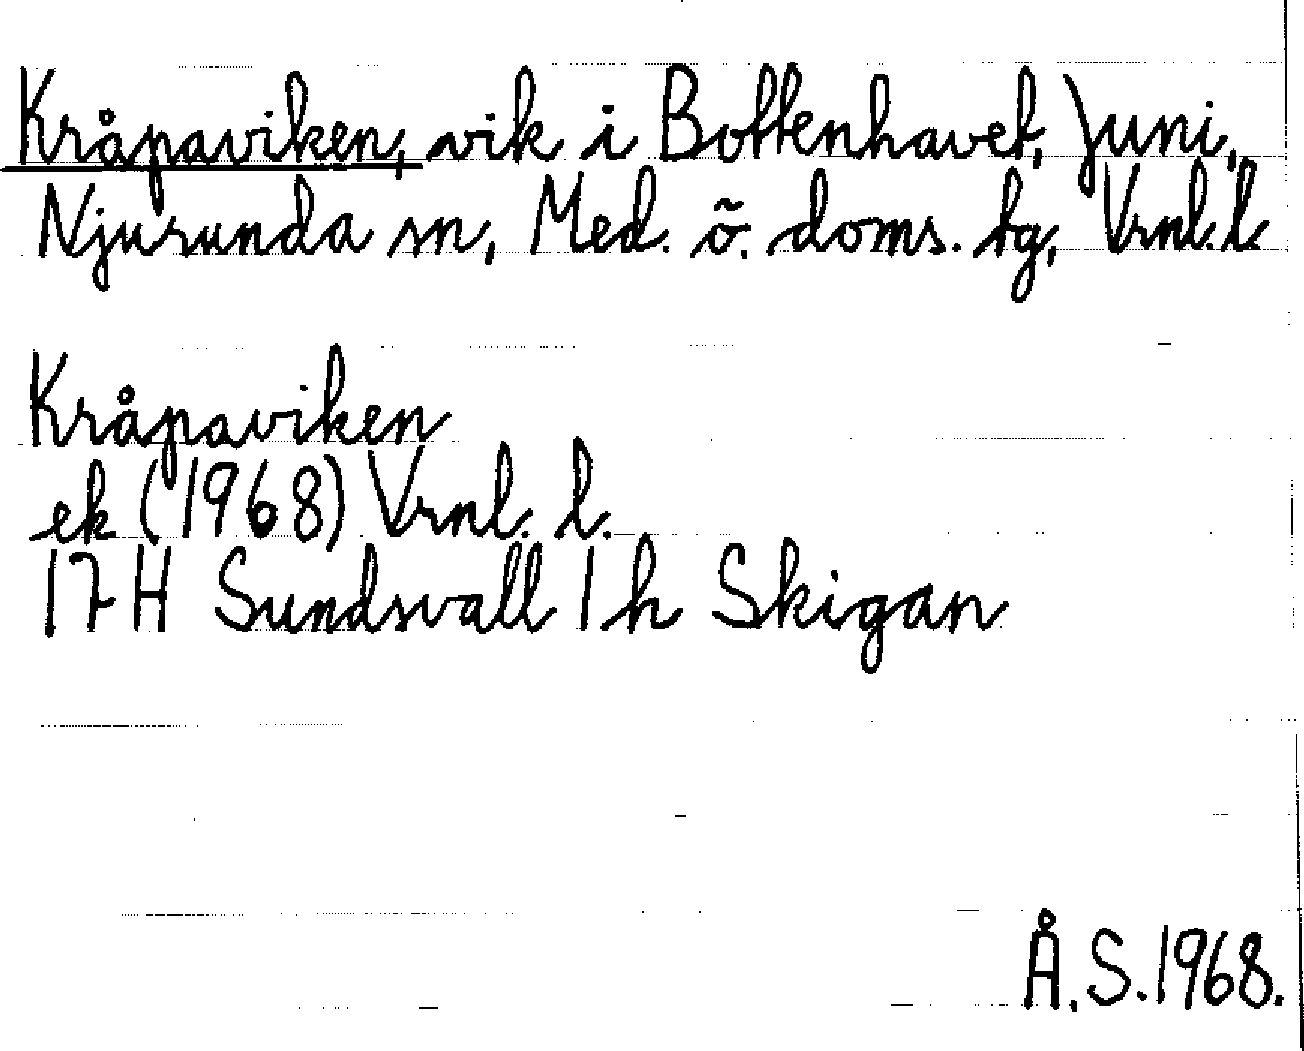 Kråpaviken, vik i Bottenhavet, Juni,
Njurunda sn, Med. ö. doms. tg, Vrnl. l
Kråpaviken
ek (1968) Vrnl. l.
17H Sundsvall 1h Skigan
Å. S. 1968.